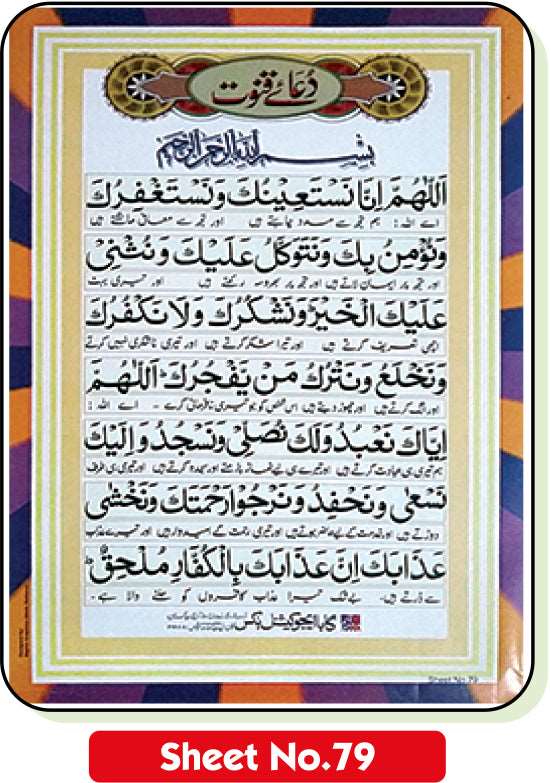 دُعائے قنوت
بِسْمِ اللّٰهِ الرَّحْمٰنِ الرَّحِيْمِ
اَللّٰهُمَّ اِنَّا نَسْتَعِيْنُكَ وَنَسْتَغْفِرُكَ
اے اللہ! ہم تجھ سے مدد چاہتے ہیں اور تجھ سے معافی مانگتے ہیں
وَنُؤْمِنُ بِكَ وَنَتَوَكَّلُ عَلَيْكَ وَنُثْنِيْ
اور تجھ پر ایمان لاتے ہیں اور تجھ پر بھروسہ رکھتے ہیں اور تیری بہت
عَلَيْكَ الْخَيْرَ وَنَشْكُرُكَ وَلَا نَكْفُرُكَ
اچھی تعریف کرتے ہیں اور تیرا شکر کرتے ہیں اور تیری ناشکری نہیں کرتے
وَنَخْلَعُ وَنَتْرُكُ مَنْ يَّفْجُرُكَ اَللّٰهُمَّ
اور الگ کرتے ہیں اور چھوڑ دیتے ہیں اس شخص کو جو تیری نافرمانی کرے ۔ اے اللہ!
اِيَّاكَ نَعْبُدُ وَلَكَ نُصَلِّيْ وَنَسْجُدُ وَاِلَيْكَ
ہم تیری ہی عبادت کرتے ہیں اور تیرے ہی لیے نماز پڑھتے اور سجدہ کرتے ہیں اور تیری ہی طرف
نَسْعٰى وَنَحْفِدُ وَنَرْجُوْا رَحْمَتَكَ وَنَخْشٰى
دوڑتے ہیں اور خدمت کے لیے حاضر ہوتے ہیں اور تیری رحمت کے امیدوار ہیں اور تیرے عذاب
عَذَابَكَ اِنَّ عَذَابَكَ بِالْكُفَّارِ مُلْحِقٌ
سے ڈرتے ہیں۔ بے شک تیرا عذاب کافروں کو ملنے والا ہے۔
گابا ایجوکیشنل بکس
Sheet No.79
Sheet No.79